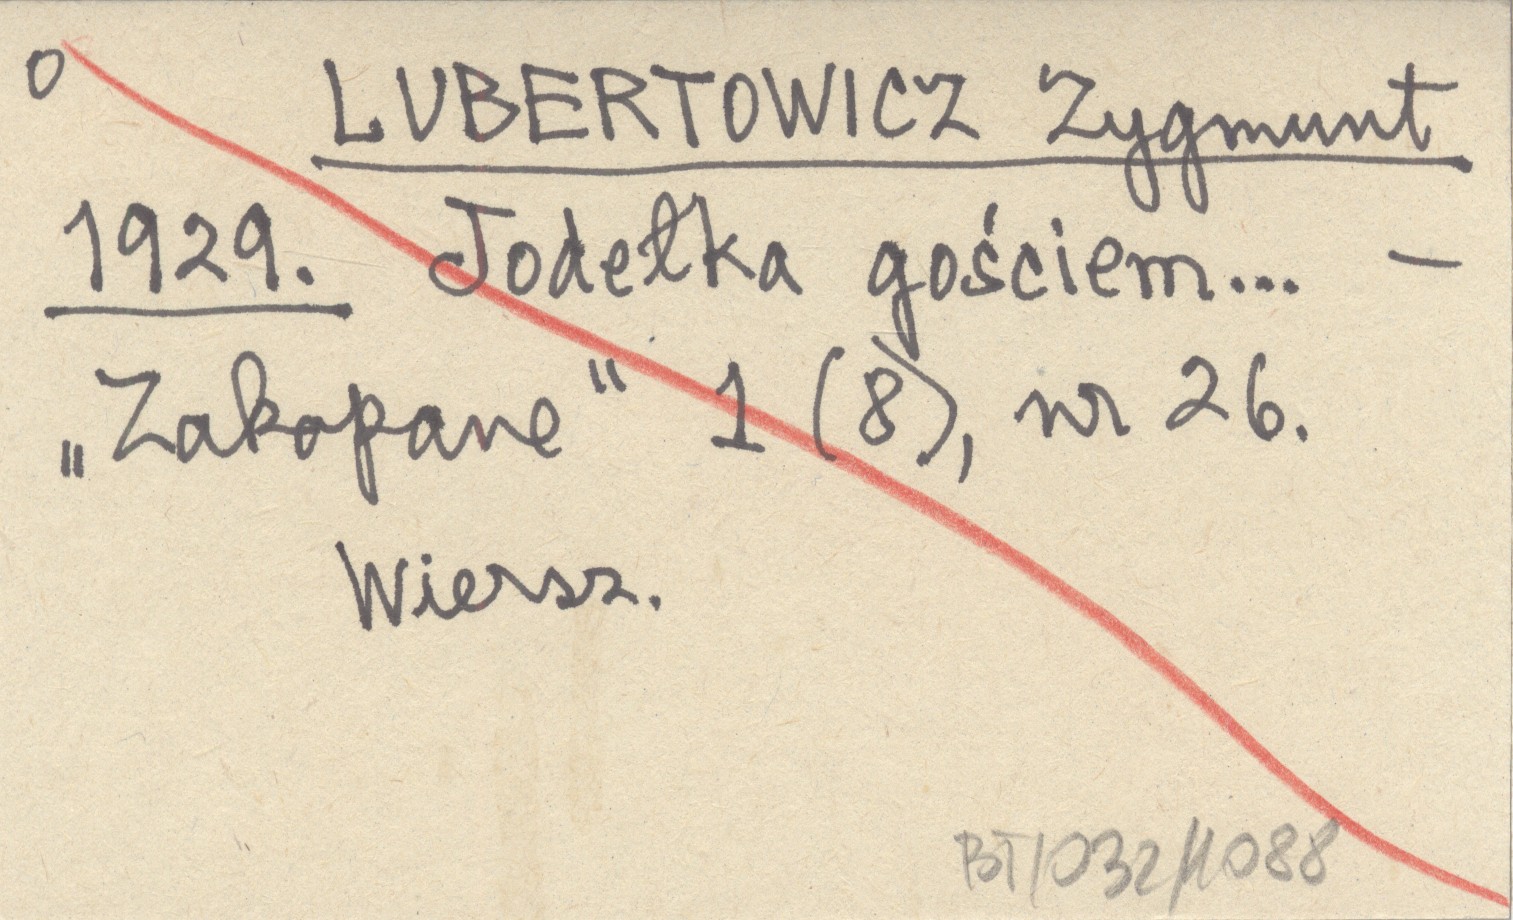 0 LUBERTOWICZ Zygmunt
1929. Jodełka gościem... –
„Zakopane" 1 (8), nr 26.
Wiersz.
BT/032/1088